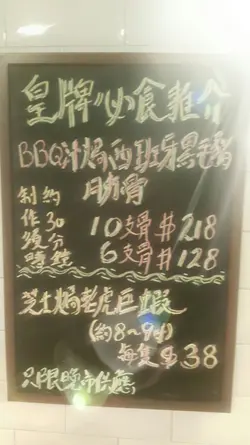 皇牌必食推介
BBQ汁焗西班牙黑毛豬
肋骨
制作須時約30分鐘
10支骨 $218
6支骨 $128
芝士焗老虎巨蝦
(約8～9吋)
每隻 $38
只限晚市供應